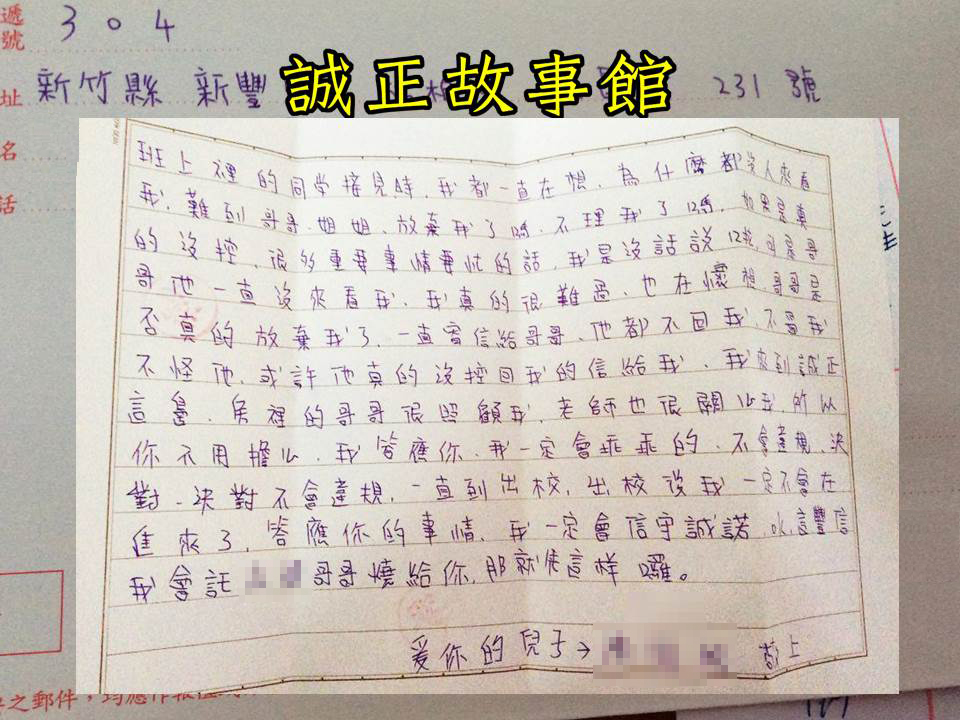 遞
號 304
址 新竹縣 新豐 231 號
誠正故事館
名
話
班上裡的同学接見時,我都一直在想,為什麼都沒人來看
我,難到哥哥.姐姐,放棄我了嗎,不理我了嗎,如果是真
的沒控,很多重要事情要忙的話,我是沒話說啦,可是哥
哥他一直沒來看我,我真的很難過,也在懷想,哥哥是
否真的放棄我了,一直寄信給哥哥,他都不回我,不過我
不怪他,或許他真的沒控回我的信給我,我來到誠正
這邊,房裡的哥哥很照顧我,老師也很關心我,所以
你不用擔心,我答應你,我一定會乖乖的,不會違規,決
對.決對不會違規,一直到出校,出校後我一定不會在
進來了,答應你的事情,我一定會信守誠諾,ok,這豐信
我會託 哥哥燒給你,那就先這样囉。
爱你的兒子→ 敬上
之郵件,均應作報值